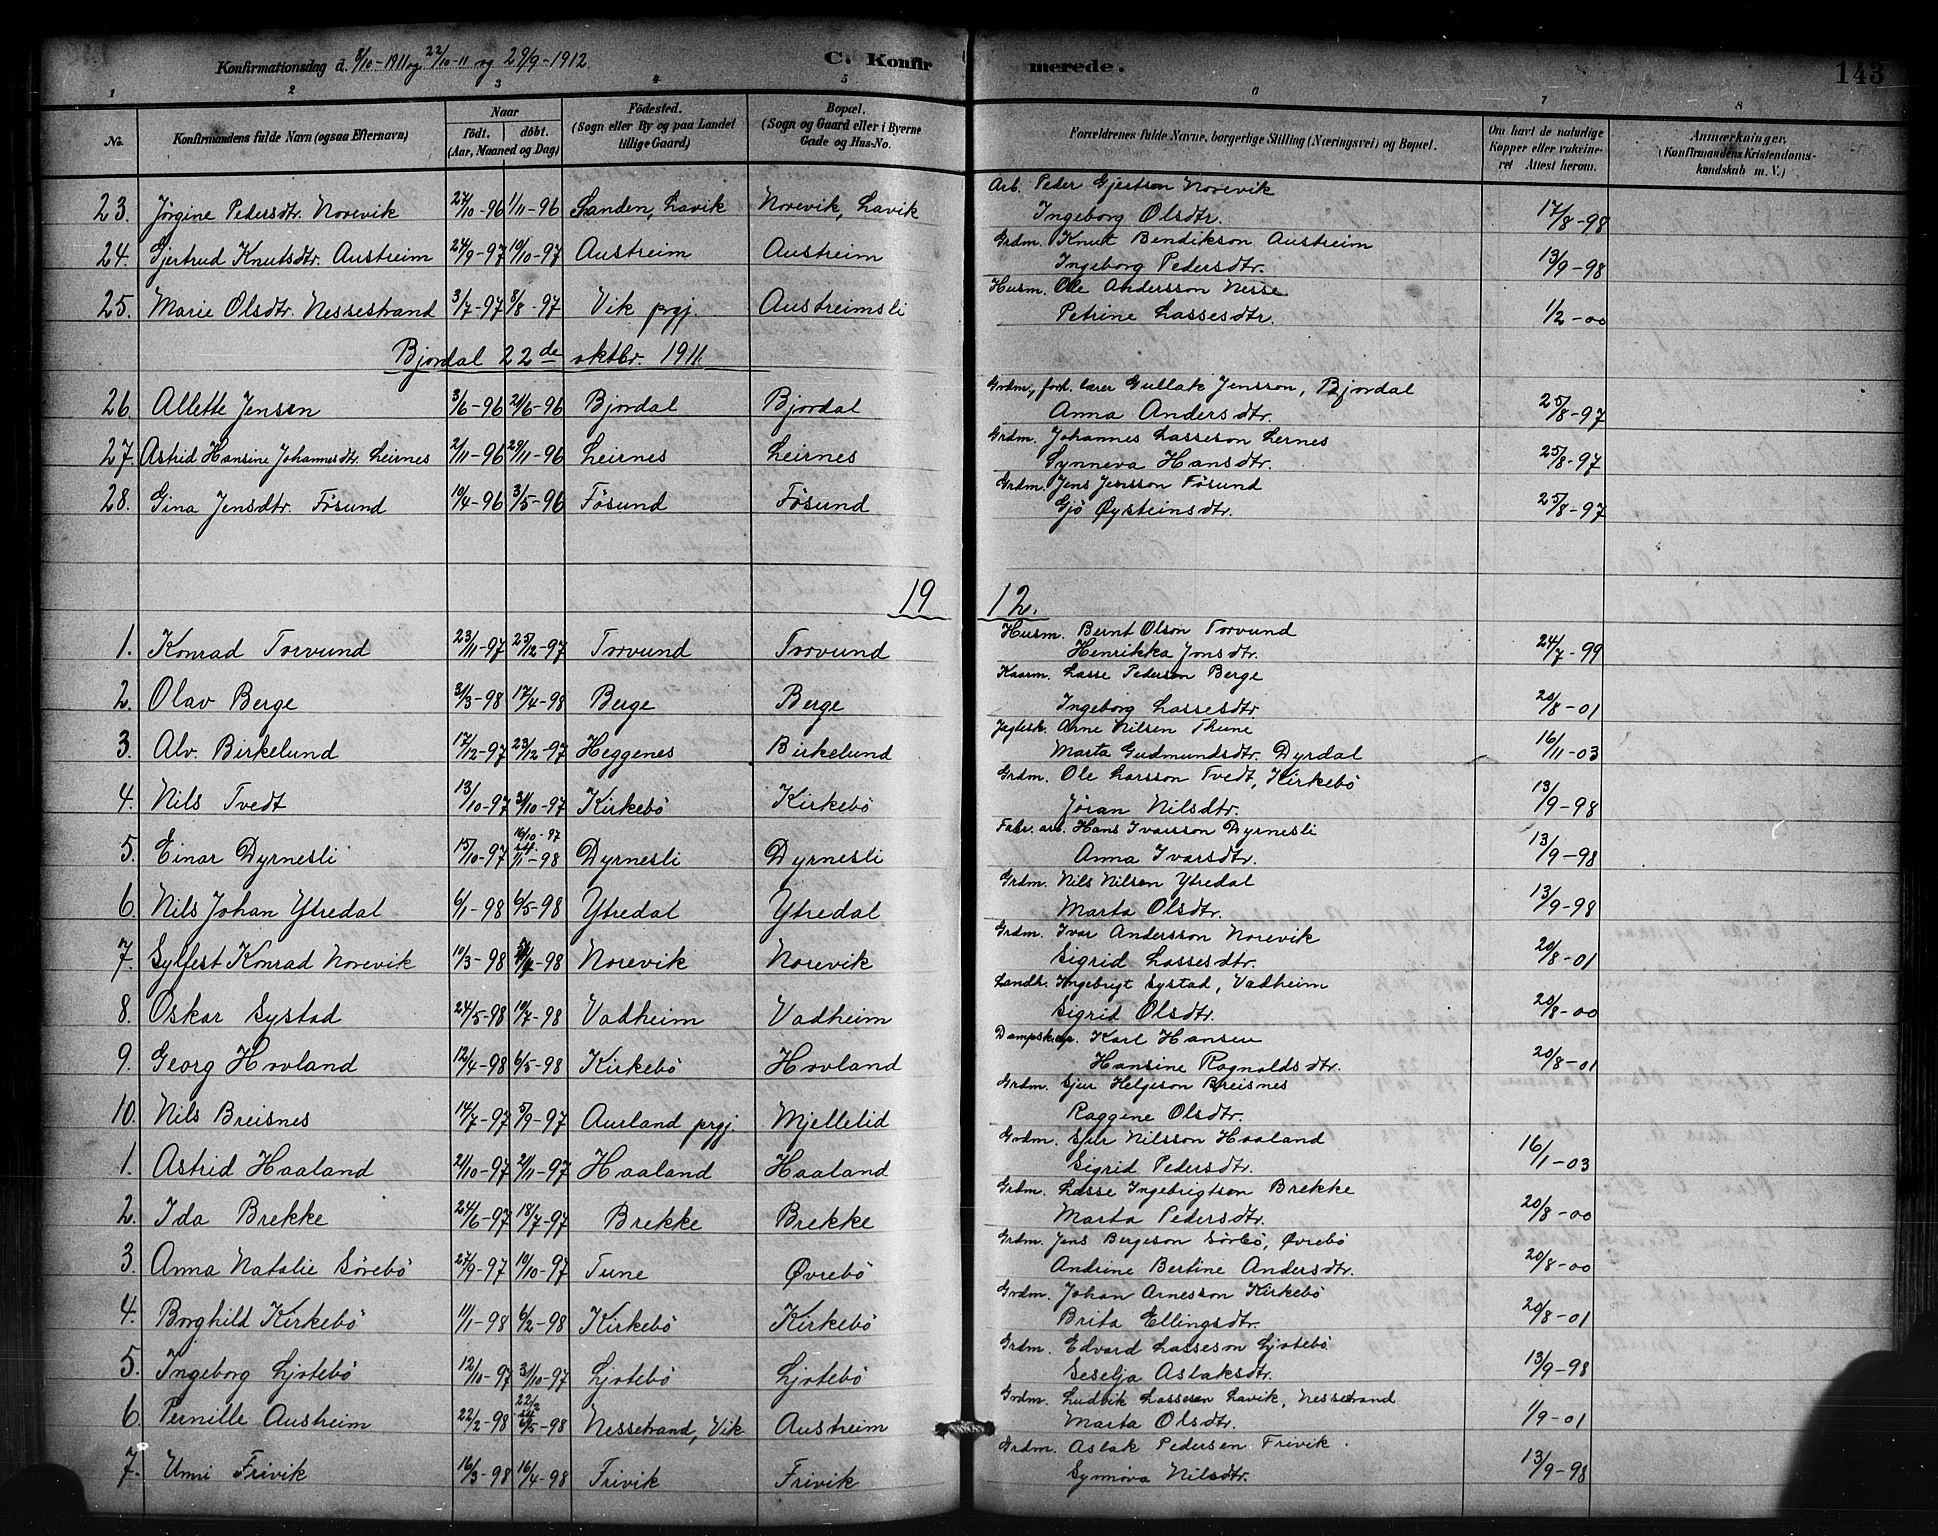 Konfirmationsdag d. 8/10-1911 og 22/10-11 og 29/9-1912
C. Konfirmerede.
143
1 2 3 4 5 6 7 8
No. Konfirmandens fulde Navn (ogsaa Efternavn) Naar födt. döbt. (Aar, Maaned og Dag) Födested. (Sogn eller By og paa Landet tillige Gaard) Bopæl. (Sogn og Gaard eller i Byerne Gade og Hus-No. Forældrenes fulde Navne, borgerlige Stilling (Næringsvei) og Bopæl. Om havt de naturlige Kopper eller vakcineret Attest herom. Anmærkninger. (Konfirmandens Kristendomskundskab m. V.)
23. Jörgine Pedersdtr. Norevik 27/10-96 1/11-96 Sanden, Lavik Norevik, Lavik Arb. Peder Gjertson Norevik
Ingeborg Olsdtr. 17/8-98
24. Gjertrud Knutsdtr. Austreim 24/9-97 10/10-97 Austreim Austreim Grdm. Knut Bendikson Austreim
Ingeborg Pedersdtr. 13/9-98
25. Marie Olsdtr. Nessestrand 3/7-97 8/8-97 Vik prgj. Austreimsli Husm. Ole Andersson Nesse
Petrine Lassesdtr. 1/2-00
Bjordal 22de oktbr. 1911.
26. Allette Jensen 3/6-96 21/6-96 Bjordal Bjordal Grdm., ford. lærer Gullak Jensson, Bjordal
Anna Andersdtr. 25/8-97
27. Astrid Hansine Johannesdtr. Leirnes 2/11-96 29/11-96 Leirnes Leirnes Grdm. Johannes Lasseson Lernes
Synneva Hansdtr. 25/8-97
28. Gina Jensdtr. Fösund 10/4-96 3/5-96 Fösund Fösund Grdm. Jens Jensson Fösund
Gjö Øysteinsdtr. 25/8-97
1912.
1. Konrad Torvund 23/11-97 25/12-97 Torvund Torvund Husm. Bernt Olson Torvund
Henrikka Jonsdtr. 24/7-99
2. Olav Berge 31/3-98 17/4-98 Berge Berge Kaarm. Lasse Pederson Berge
Ingeborg Lassesdtr 20/8-01
3. Alv. Birkelund 17/12-97 23/12-97 Heggenes Birkelund Jagtesk. Arne Nilsen Thune
Marta Gudmundsdtr. Dyrdal 16/11-03
4. Nils Tvedt 13/10-97 31/10-97 Kirkebö Kirkebö Grdm. Ole Larsson Tvedt, Kirkebö
Jöran Nilsdtr. 13/9-98
5. Einar Dyrnesli 15/10-97 16/10-97 1/1-98 Dyrnesli Dyrnesli Fabr. arb. Hans Ivarsson Dyrnesli
Anna Ivarsdtr. 13/9-98
6. Nils Johan Ytredal 6/1-98 6/5-98 Ytredal Ytredal Grdm. Nils Nilsen Ytredal
Marta Olsdtr. 13/9-98
7. Sylfest Konrad Norevik 10/3-98 Norevik Norevik Grdm. Ivar Andersson Norevik
Sigrid Lassesdtr. 20/8-01
8. Oskar Systad 24/5-98 10/7-98 Vadheim Vadheim Landh. Ingebrigt Systad, Vadheim
Sigrid Olsdtr. 20/8-00
9. Georg Hovland 12/4-98 6/5-98 Kirkebö Hovland Dampskep. Karl Hansen
Hansine Ragnaldsdtr. 20/8-01
10. Nils Breisnes 14/7-97 5/9-97 Aurland prgj. Mjellelid Grdm. Sjur Helgeson Breisnes
Raggene Olsdtr.
1. Astrid Haaland 2/10-97 21/11-97 Haaland Haaland Grdm. Sjur Nilsson Haaland
Sigrid Pedersdtr. 16/1-03
2. Ida Brekke 24/6-97 18/7-97 Brekke Brekke Grdm. Lasse Ingebrigtson Brekke
Marta Pedersdtr. 20/8-00
3. Anna Natalie Sörebö 27/9-97 10/10-97 Tune Øvrebö Grdm. Jens Bergeson Sörbö, Øvrebö
Andrine Bertine Andersdtr. 20/8-00
4. Borghild Kirkebö 11/1-98 6/2-98 Kirkebö Kirkebö Grdm. Johan Arnesson Kirkebö
Brita Ellingsdtr. 20/8-01
5. Ingeborg Ljotebö 12/10-97 31/10-97 Ljotebö Ljotebö Grdm. Edvard Lasseson Ljotebö
Seselja Aslaksdtr. 13/9-98
6. Pernille Austreim 22/2-98 22/2 6/5-98 Nessestrand, Vik Austreim Grdm. Ludvik Lassesen Lavik, Nessestrand
Marta Olsdtr. 1/9-01
7. Unni Frivik 16/3-98 16/4-98 Frivik Frivik Grdm. Aslak Pedersen Frivik.
Synnöva Nilsdtr. 13/9-98